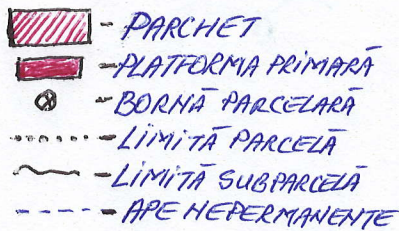 - PARCHET
- PLATFORMA PRIMARĂ
- BORNĂ PARCELARĂ
- LIMITĂ PARCELĂ
- LIMITĂ SUBPARCELĂ
- APE NEPERMANENTE